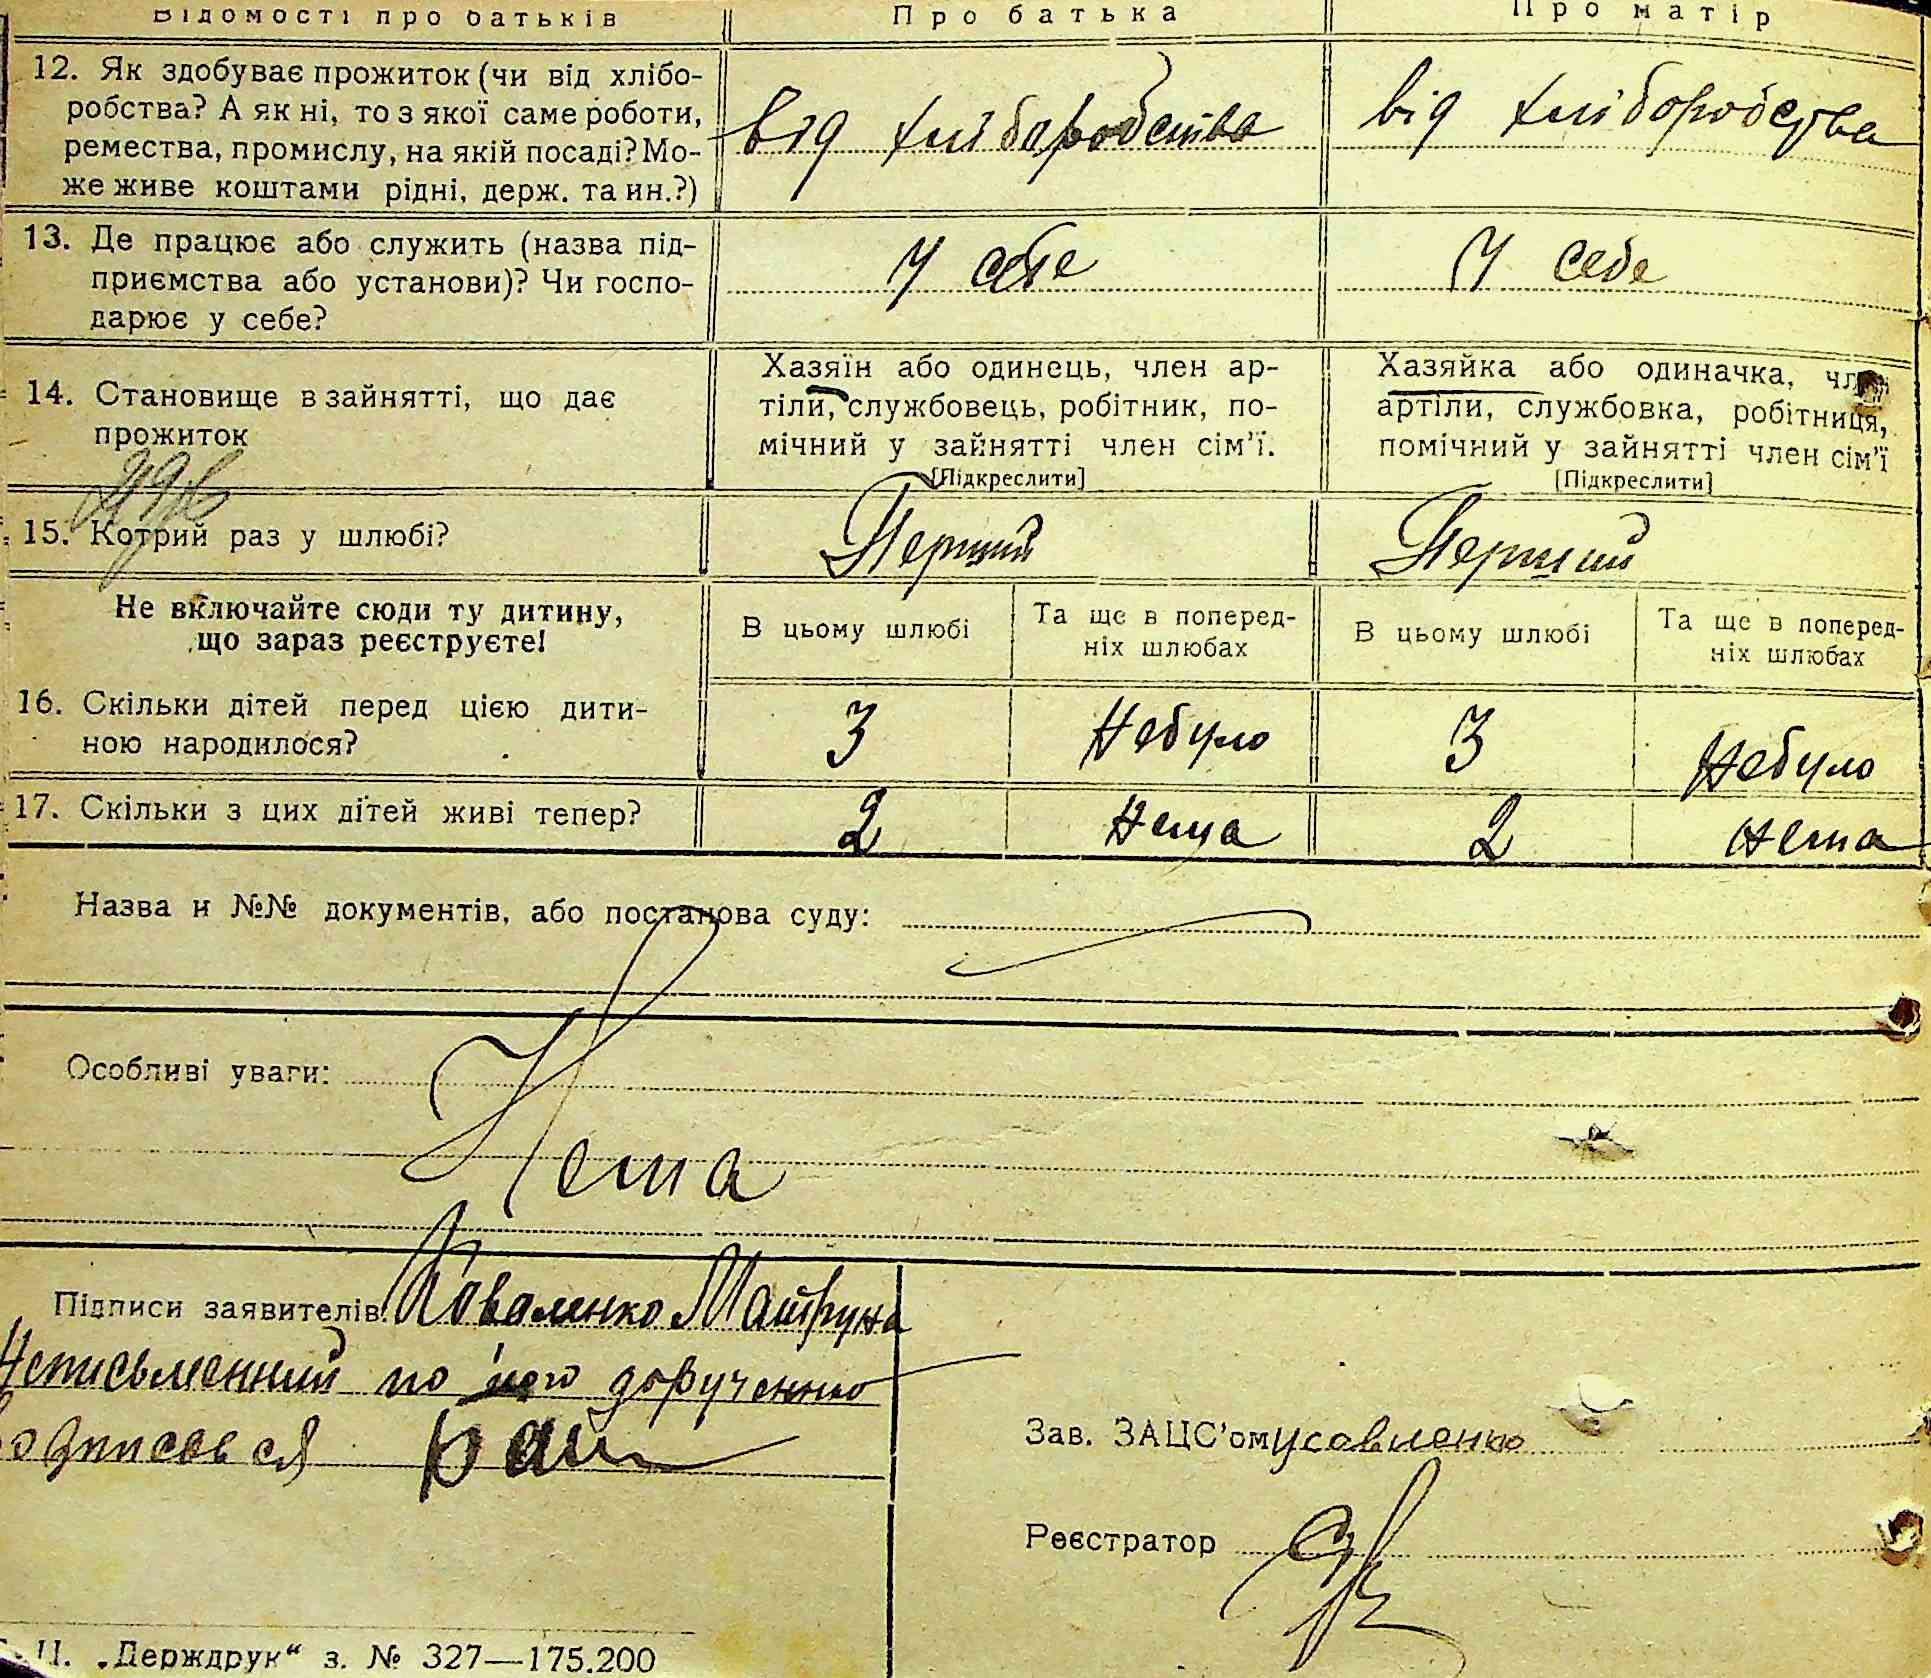 Відомості про батьків Про батька Про матір
12. Як здобуває прожиток (чи від хлібо-
робства? А як ні, то з якої саме роботи,
ремества, промислу, на якій посаді? Мо-
же живе коштами рідні, держ. та ин.?)
від хліборобства від хліборобства
13. Де працює або служить (назва під-
приємства або установи)? Чи госпо-
дарює у себе?
У себе У себе
14. Становище в зайнятті, що дає
прожиток
Хазяїн або одинець, член ар-
тіли, службовець, робітник, по-
мічний у зайнятті член сім'ї.
[Підкреслити]
Хазяйка або одиначка, член
артіли, службовка, робітниця,
помічний у зайнятті член сім'ї
[Підкреслити]
15. Котрий раз у шлюбі? Перший Перший
Не включайте сюди ту дитину,
що зараз реєструєте!
В цьому шлюбі
Та ще в поперед-
ніх шлюбах
В цьому шлюбі
Та ще в поперед-
ніх шлюбах
16. Скільки дітей перед цією дити-
ною народилося?
3 Небуло 3 Небуло
17. Скільки з цих дітей живі тепер? 2 Нема 2 Нема
Назва и №№ документів, або постанова суду:
Особливі уваги:
Нема
Підписи заявителів: Коваленко Матруна
Неписьменний по його дорученню
подписався
Зав. ЗАЦС'ом
Реєстратор
II. „Держдрук“ з. № 327—175.200